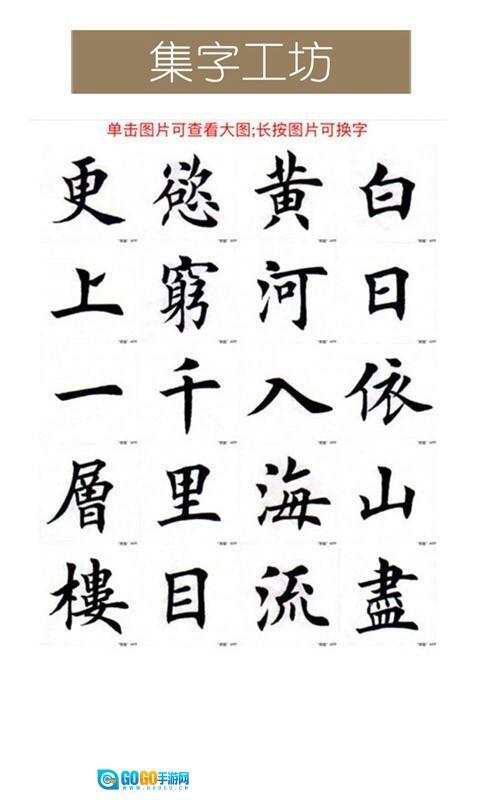 集字工坊
单击图片可查看大图;长按图片可换字
白日依山盡
黄河入海流
慾窮千里目
更上一層樓
GOGO手游网
WWW.GOGO.CN